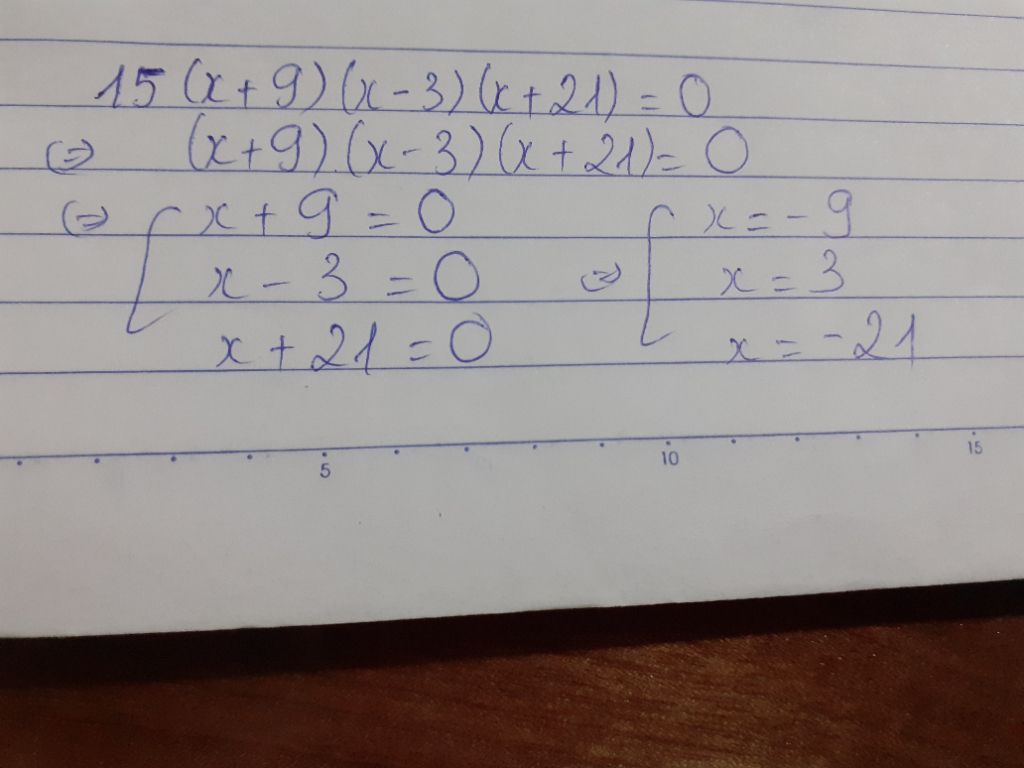 15 (x + 9) (x - 3) (x + 21) = 0
⇔ (x + 9) . (x - 3) (x + 21) = 0
⇔ [ x + 9 = 0 [ x = - 9
x - 3 = 0 ⇔ x = 3
x + 21 = 0 x = - 21
5 10 15